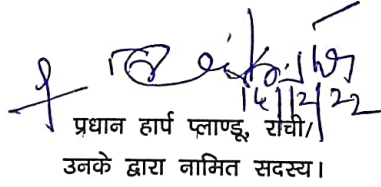 14/12/22
प्रधान हार्प प्लाण्डू, रांची/
उनके द्वारा नामित सदस्य।